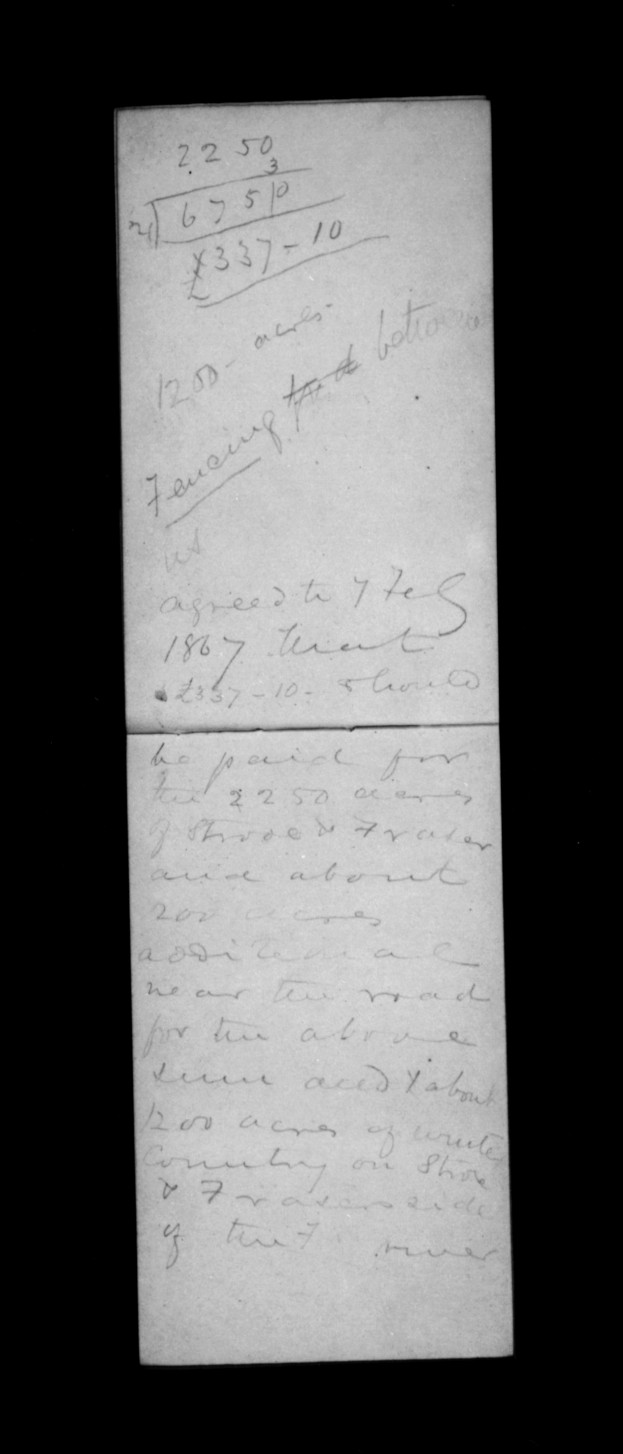 2250
3
2|) 675|0
£337-10
1200 - acres.
Fencing for &
us
agreed to 7 Feby
1867 that
£337-10- should
be paid for
the 2250 acres
of Shroe & Fraser
and about
200 acres
additional
near the road
for the above
sum and & about
1200 acres of
Country on Shroe
& Frasers side
of the river